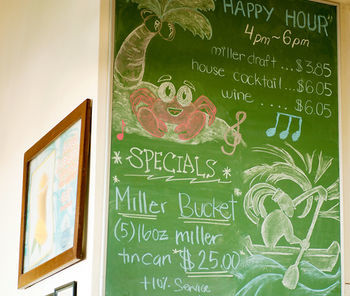 "HAPPY HOUR"
4pm~6pm
miller draft...$3.85
house cocktail...$6.05
wine ....$6.05
*SPECIALS*
*Miller Bucket
(5) 16oz miller
tincan *$25.00
+10% Service